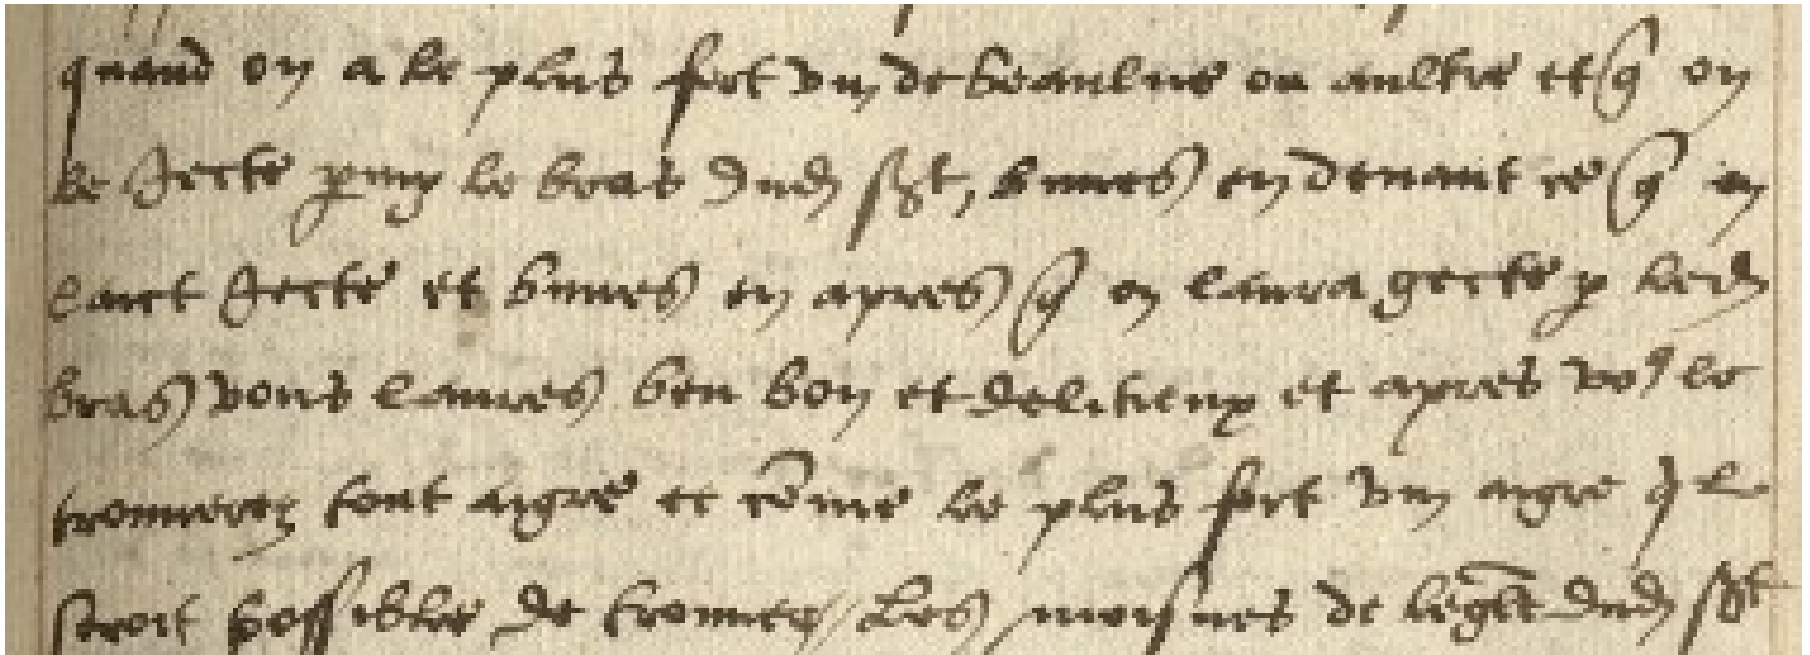 quand on a le plus fort vin de beaulne ou aultre et q on
le Jecte p my le bras dud sct, buves en devant ce q on
lait Jecte et buves en apres q on laura gecte p led
bras vous laures ben bon et delitieux et apres vo9 le
trouverez tout aigre et co me le plus fort vin aigre q l
seroit possible de trouver // Les moisnes de leg dud sct